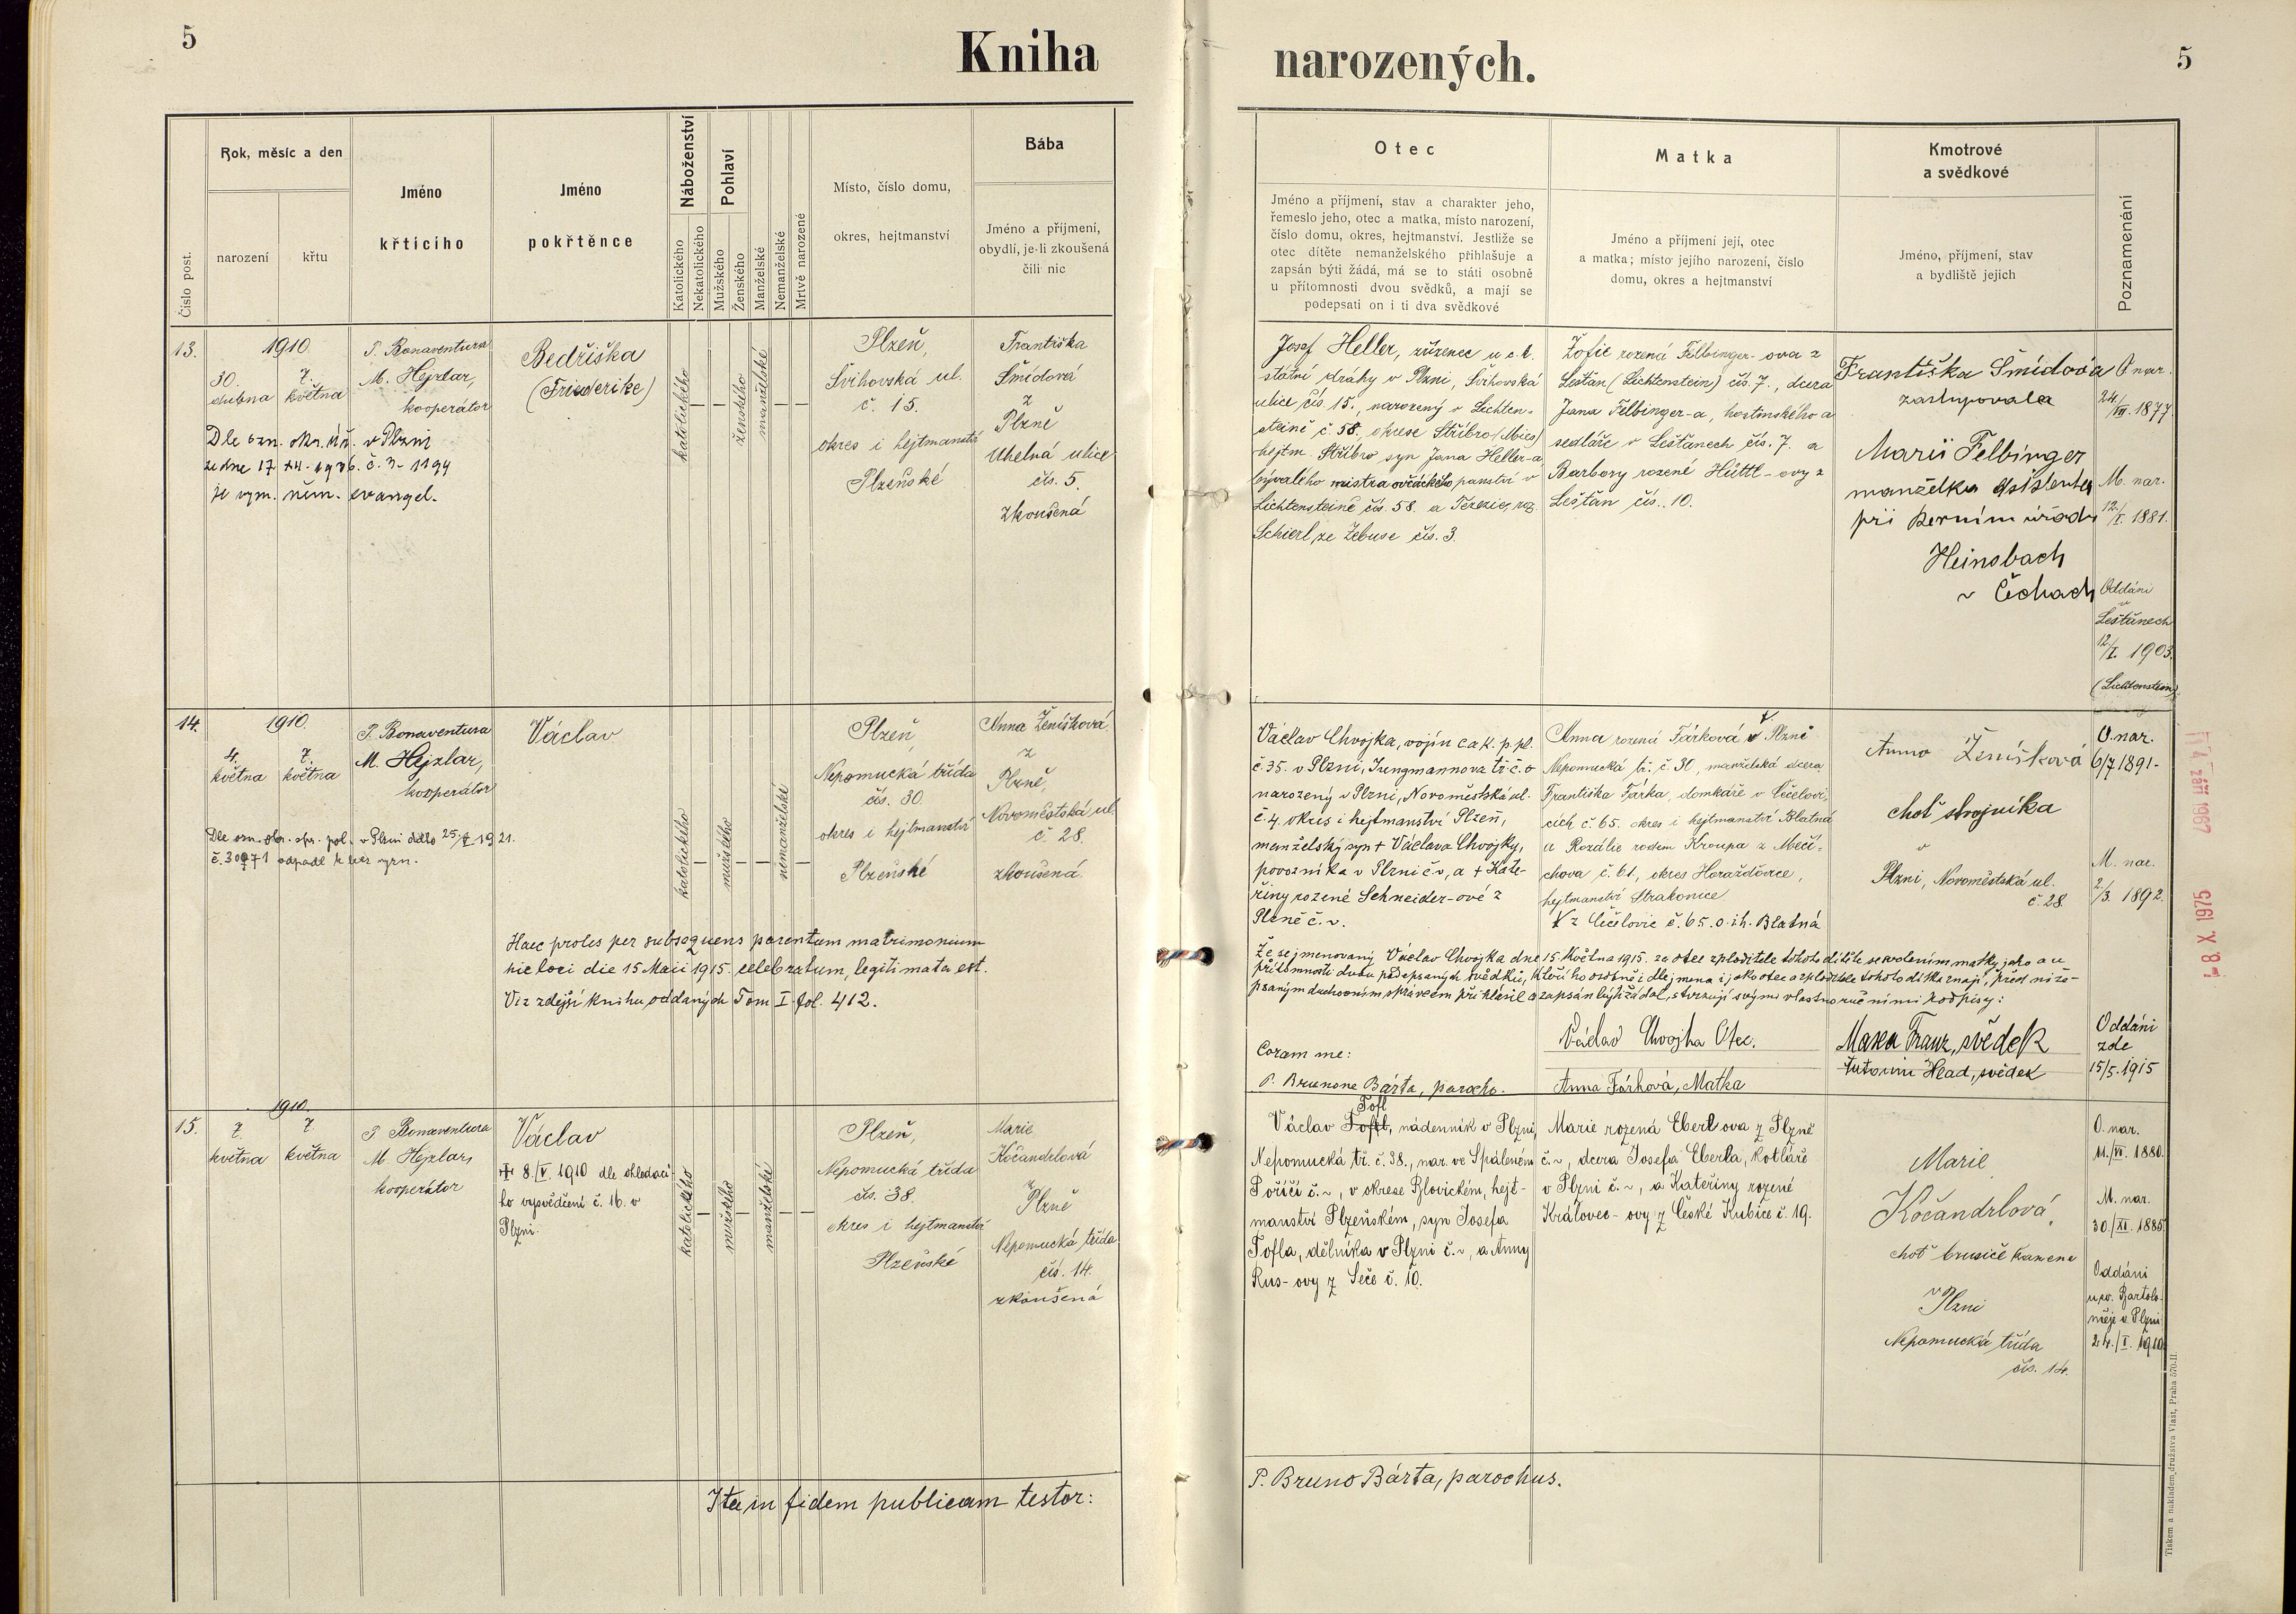 5
Kniha
narozených.
5
Číslo post.
Rok, měsíc a den
narození
křtu
Jméno
křticího
Jméno
pokřtěnce
Náboženství
Katolického
Nekatolického
Pohlaví
Mužského
Ženského
Manželské
Nemanželské
Mrtvě narozené
Místo, číslo domu,
okres, hejtmanství
Bába
Jméno a příjmení,
obydlí, je-li zkoušená
čili nic
Otec
Jméno a příjmení, stav a charakter jeho,
řemeslo jeho, otec a matka, místo narození,
číslo domu, okres, hejtmanství. Jestliže se
otec dítěte nemanželského přihlašuje a
zapsán býti žádá, má se to státi osobně
u přítomnosti dvou svědků, a mají se
podepsati on i ti dva svědkové
Matka
Jméno a příjmení její, otec
a matka; místo jejího narození, číslo
domu, okres a hejtmanství
Kmotrové
a svědkové
Jméno, příjmení, stav
a bydliště jejich
Poznamenání
13.
1910.
30.
dubna
7.
května
P. Bonaventura
M. Hejzlar,
kooperátor
Dle ozn. okr. úř. v Plzni
ze dne 17. 1936. č. 3-1194
je vym. něm. evangel.
Bedřiška
(Friederike)
katolického
ženského
manželské
Plzeň,
Švihovská ul.
č. 15.
okres i hejtmanství
Plzeňské
Františka
Šmídová
z
Plzně
Uhelná ulice
čís. 5.
zkoušená
Josef Heller, zřízenec u c. k.
státní dráhy v Plzni, Švihovská
ulice čís. 15., narozený v Lichten-
steině č. 58., okrese Stříbro (Mies)
hejtm. Stříbro syn Jana Heller-a
bývalého mistra ovčáckého panství v
Lichtensteině čís. 58. a Terezie, roz.
Schierl, ze Žebuse čís. 3.
Žofie rozená Felbinger-ova z
Lešťan (Lichtenstein) čís. 7., dcera
Jana Felbinger-a, hostinského a
sedláře v Lešťanech čís. 7. a
Barbory rozené Hüttl-ovy z
Lešťan čís. 10.
Františka Šmídová
zastupovala
Marii Felbinger
manželka asistenta
při berním úřadu
Heinsbach
v Čechach
O. nar.
24./VII. 1877.
M. nar.
12./I. 1881.
Oddáni
v
Lešťanech
12./I. 1903.
(Lichtenstein)
14.
1910.
4.
května
7.
května
P. Bonaventura
M. Hejzlar,
kooperátor
Dle ozn. okr. spr. pol. v Plzni ddto 25./I. 1921.
č. 30971 odpadl k bez vyzn.
Václav
katolického
mužského
nemanželské
Plzeň,
Nepomucká třída
čís. 30.
okres i hejtmanství
Plzeňské
Anna Ženíšková
z
Plzně,
Novoměstská ul.
č. 28.
zkoušená.
Haec proles per subsequens parentum matrimonium
hic loci die 15 Maii 1915. celebratum, legitimata est.
Viz zdejší knihu oddaných Tom I. fol. 412.
Václav Chvojka, vojín c. a k. p. pl.
č. 35. v Plzni, Jungmannova tř. č. 0
narozený v Plzni, Novoměstská ul.
č. 4. okres i hejtmanství Plzeň,
manželský syn + Václava Chvojky,
povozníka v Plzni č. v, a + Kate-
řiny rozené Schneider-ové z
Plzně č. v.
Anna rozená Fárková v Plzně
Nepomucká tř. č. 30, manželská dcera
Františka Fárka, domkáře v Čečelovi-
cích č. 65. okres i hejtmanství Blatná
a Rozálie rodem Kroupa z Mečí-
chova č. 61., okres Horažďovice,
hejtmanství Strakonice.
z Čečelovic č. 65. o. i h. Blatná
Anna Ženíšková
choť strojníka
v
Plzni, Novoměstská ul.
č. 28.
O. nar.
6/7 1891.
M. nar.
2/3. 1892.
Že se jmenovaný Václav Chvojka dne 15. května 1915. za otce zploditele tohoto dítěte se svolením matky jeho a u
přítomnosti dvou podepsaných svědků, kteří ho osobně i dle jmena i jako otce a zploditele tohoto dítka znají, před níže-
psaným duchovním správcem přihlásil a zapsán býti žádal, stvrzují svými vlastnoručními podpisy:
Coram me:
P. Brunone Bárta, parocho.
Václav Chvojka Otec.
Anna Fárková, Matka
Maxa Franz, svědek
Antonín Hlad, svědek
Oddáni
zde
15/5. 1915
14. září 1967
- 8. X. 1975
15.
1910
7.
května
7.
května
P. Bonaventura
M. Hejzlar,
kooperátor
Václav
+ 8./V. 1910 dle ohledací-
ho vysvědčení č. 16. v
Plzni.
katolického
mužského
manželské
Plzeň,
Nepomucká třída
čís. 38.
okres i hejtmanství
Plzeňské
Marie
Kočandrlová
z
Plzně
Nepomucká třída
čís. 14.
zkoušená
Tofl
Václav Toftl, nádenník v Plzni,
Nepomucká tř. č. 38., nar. ve Spáleném
Poříčí č. ~, v okrese Blovickém, hejt-
manství Plzeňském, syn Josefa
Tofla, dělníka v Plzni č. ~, a Anny
Rus-ovy z Seče č. 10.
Marie rozená Eberl ova z Plzně
č. ~, dcera Josefa Eberla, kotláře
v Plzni č. ~, a Kateřiny rozené
Královec-ovy z České Kubice č. 19.
Marie
Kočandrlová,
choť brusiče kamene
v
Plzni
Nepomucká třída
čís. 14.
O. nar.
11./VI. 1880.
M. nar.
30./XI. 1885.
Oddáni
u sv. Bartolo-
měje v Plzni
24./I. 1910.
Ita in fidem publicam testor:
P. Bruno Bárta, parochus.
Tiskem a nakladem družstva Vlast, Praha 570-II.